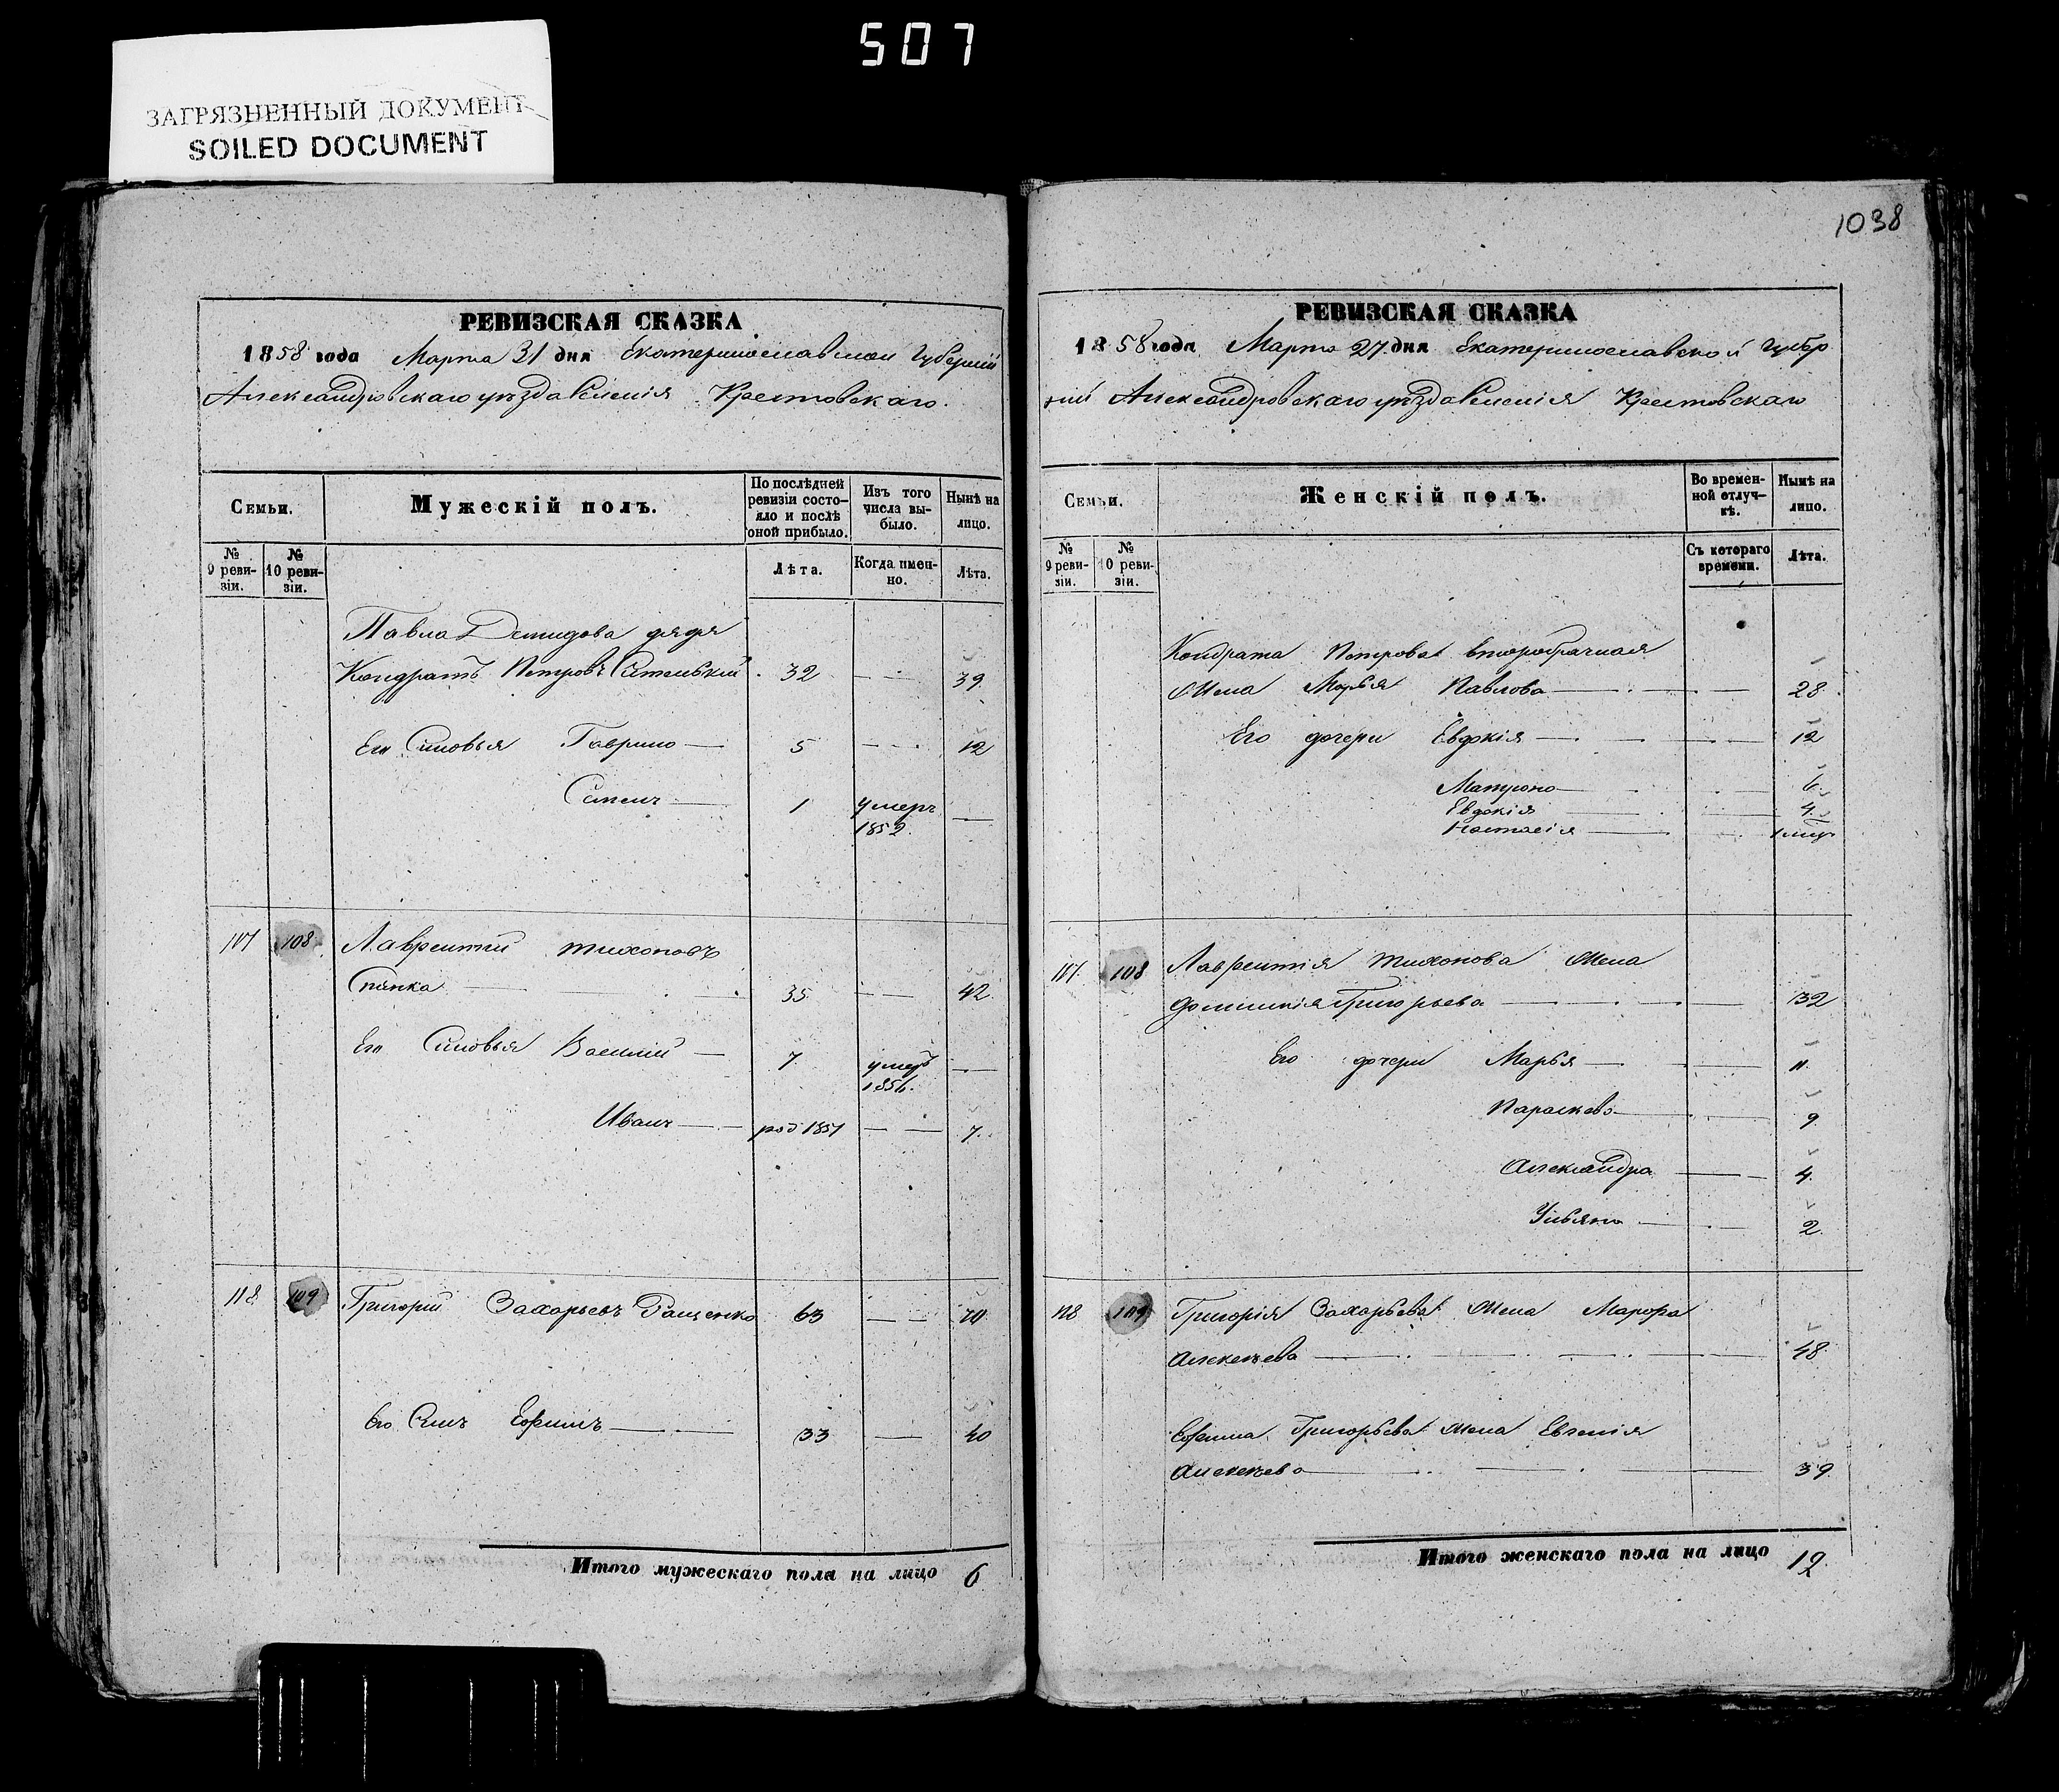 507
ЗАГРЯЗНЕННЫЙ ДОКУМЕНТ
SOILED DOCUMENT
РЕВИЗСКАЯ СКАЗКА
1858 года Марта 31 дня Екатеринославской Губерніи
Александровскаго уѣзда Селенія Крестовскаго.
Семьи.
Мужескій полъ.
По послѣдней ревизіи состояло и послѣ оной прибыло.
Изъ того числа выбыло.
Нынѣ на лицо.
№ 9 ревизіи.
№ 10 ревизіи.
Лѣта.
Когда именно.
Лѣта.
Павла Демидова дядя
Кондратъ Петровъ 32 — — 39.
Его Сыновья Гаврило — 5 — — 12
Семенъ — 1 умеръ —
1852.
107 108 Лаврентий Тихоновъ
Спанка — 35 — — 42
Его Сыновья Василий — 7. умеръ —
1856.
Иванъ — род 1851 — — 7.
118 109 Григорий Захарьевъ Гащенко 63 — — 70
Его Сынъ Ефимъ — 33 — 40
Итого мужескаго пола на лицо 6
1038
РЕВИЗСКАЯ СКАЗКА
1858 года Марта 27 дня Екатеринославской Губер
ніи Александровскаго уѣзда Селенія Крестовскаго
Семьи.
Женскій полъ.
Во временной отлучкѣ.
Нынѣ на лицо.
№ 9 ревизіи.
№ 10 ревизіи.
Съ котораго времени.
Лѣта.
Кондрата Петрова второбрачная
жена Марья Павлова — 28.
Его дочери Евдокія — 12
Матрона — 6
Евдокія — 4
Настасія — 1 мѣц
107. 108 Лаврентія Тихонова жена
Домникія Григорьева — 32
Его дочери Марья — 11.
Параскева — 9
Александра — 4
Ульяна — 2
118 109 Григорія Захарьева жена Марфа
Алексѣева — 48
Ефима Григорьева жена Евгенія
Алексѣева — 39.
Итого женскаго пола на лицо 12.